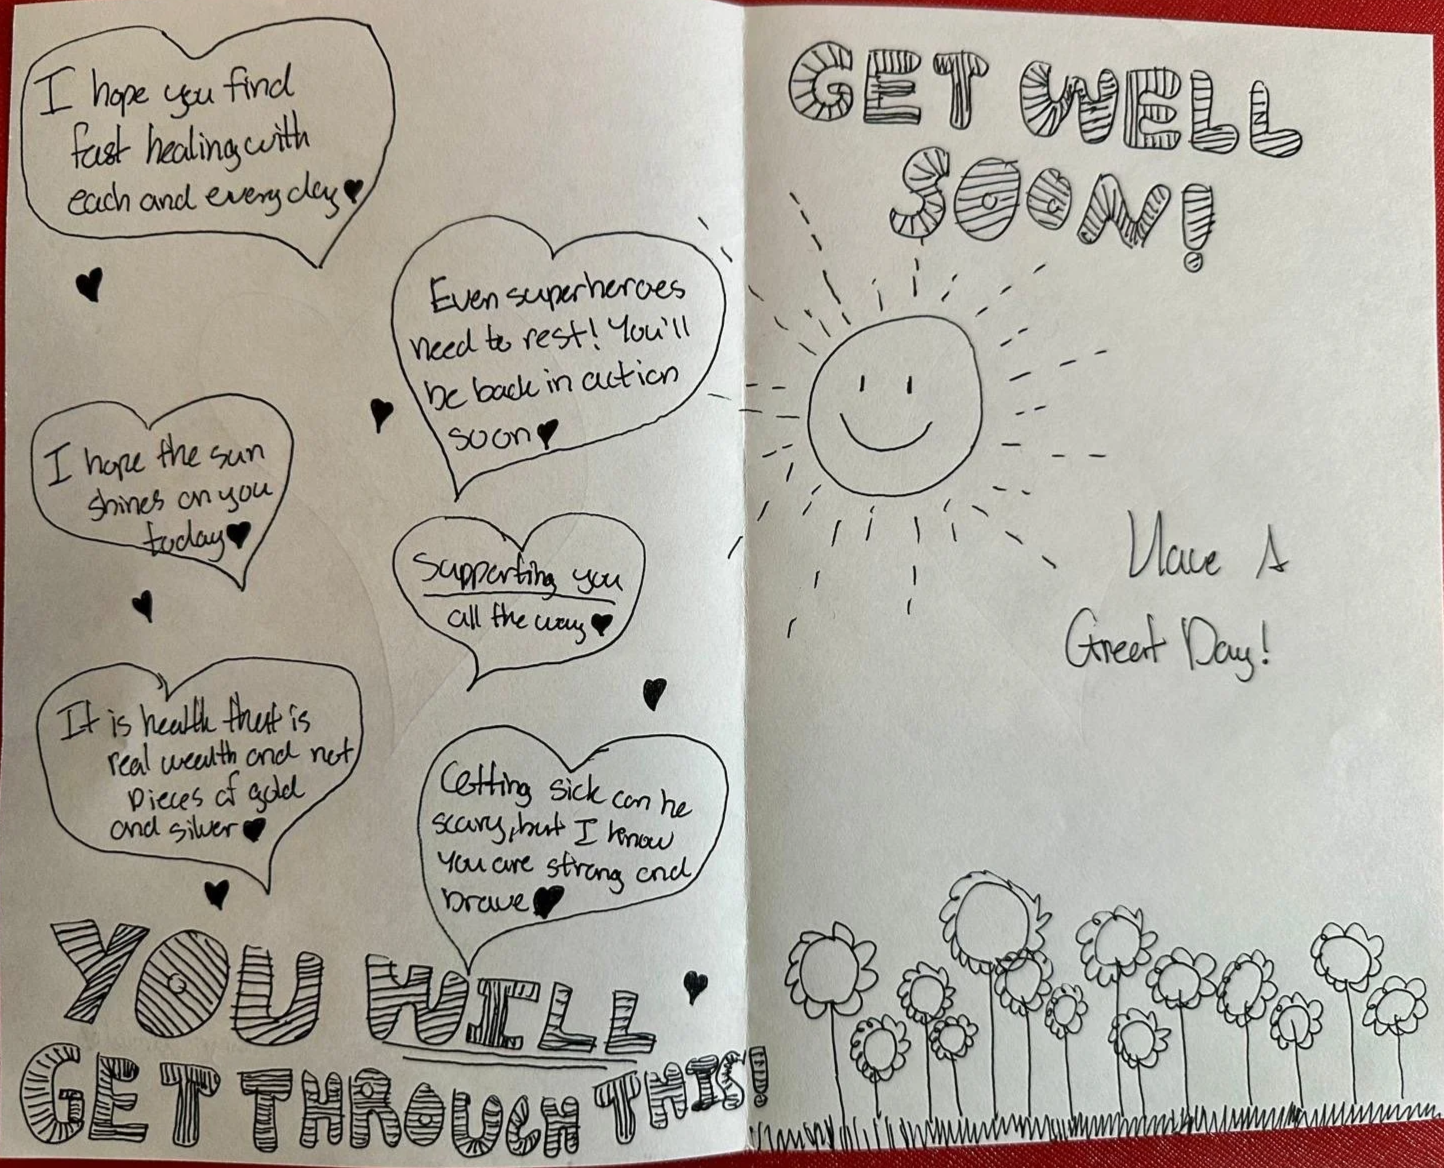 I hope you find
fast healing with
each and every day
Even superheroes
need to rest! You'll
be back in action
soon
I hope the sun
shines on you
today
Supporting you
all the way
It is health that is
real wealth and not
pieces of gold
and silver
Getting sick can be
scary, but I know
you are strong and
brave
YOU WILL
GET THROUGH THIS!
GET WELL
SOON!
Have A
Great Day!